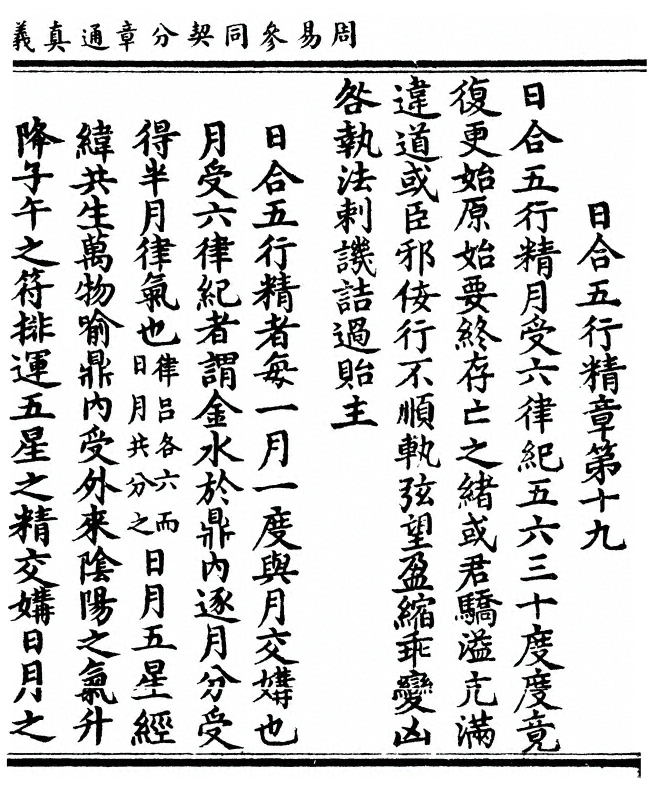 周易參同契分章通真義
日合五行精章第十九
日合五行精月受六律紀五六三十度度竟
復更始原始要終存亡之緒或君驕溢亢滿
違道或臣邪佞行不順軌弦望盈縮乖變凶
咎執法刺譏詰過貽主
日合五行精者每一月一度與月交媾也
月受六律紀者謂金水於鼎內逐月分受
得半月律氣也律呂各六而日月共分之日月五星經
緯共生萬物喻鼎內受外來陰陽之氣升
降子午之符排運五星之精交媾日月之